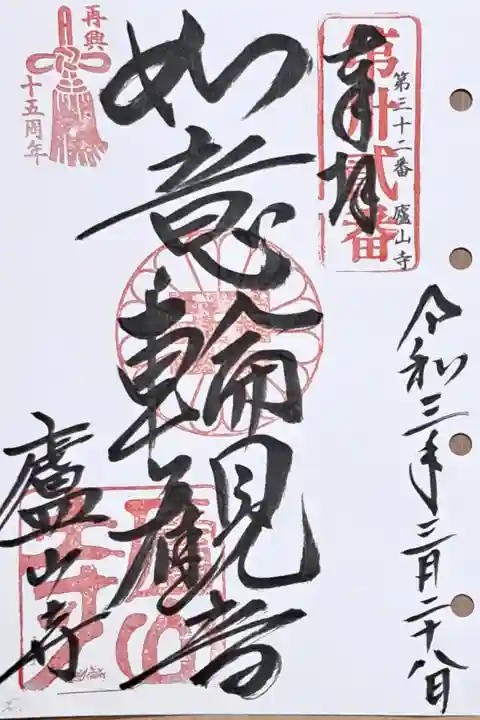 奉拝
第丗貳番
第三十二番 廬山寺
令和三年三月二十八日
如意輪観音
廬山寺
再興
十五周年
廬山寺